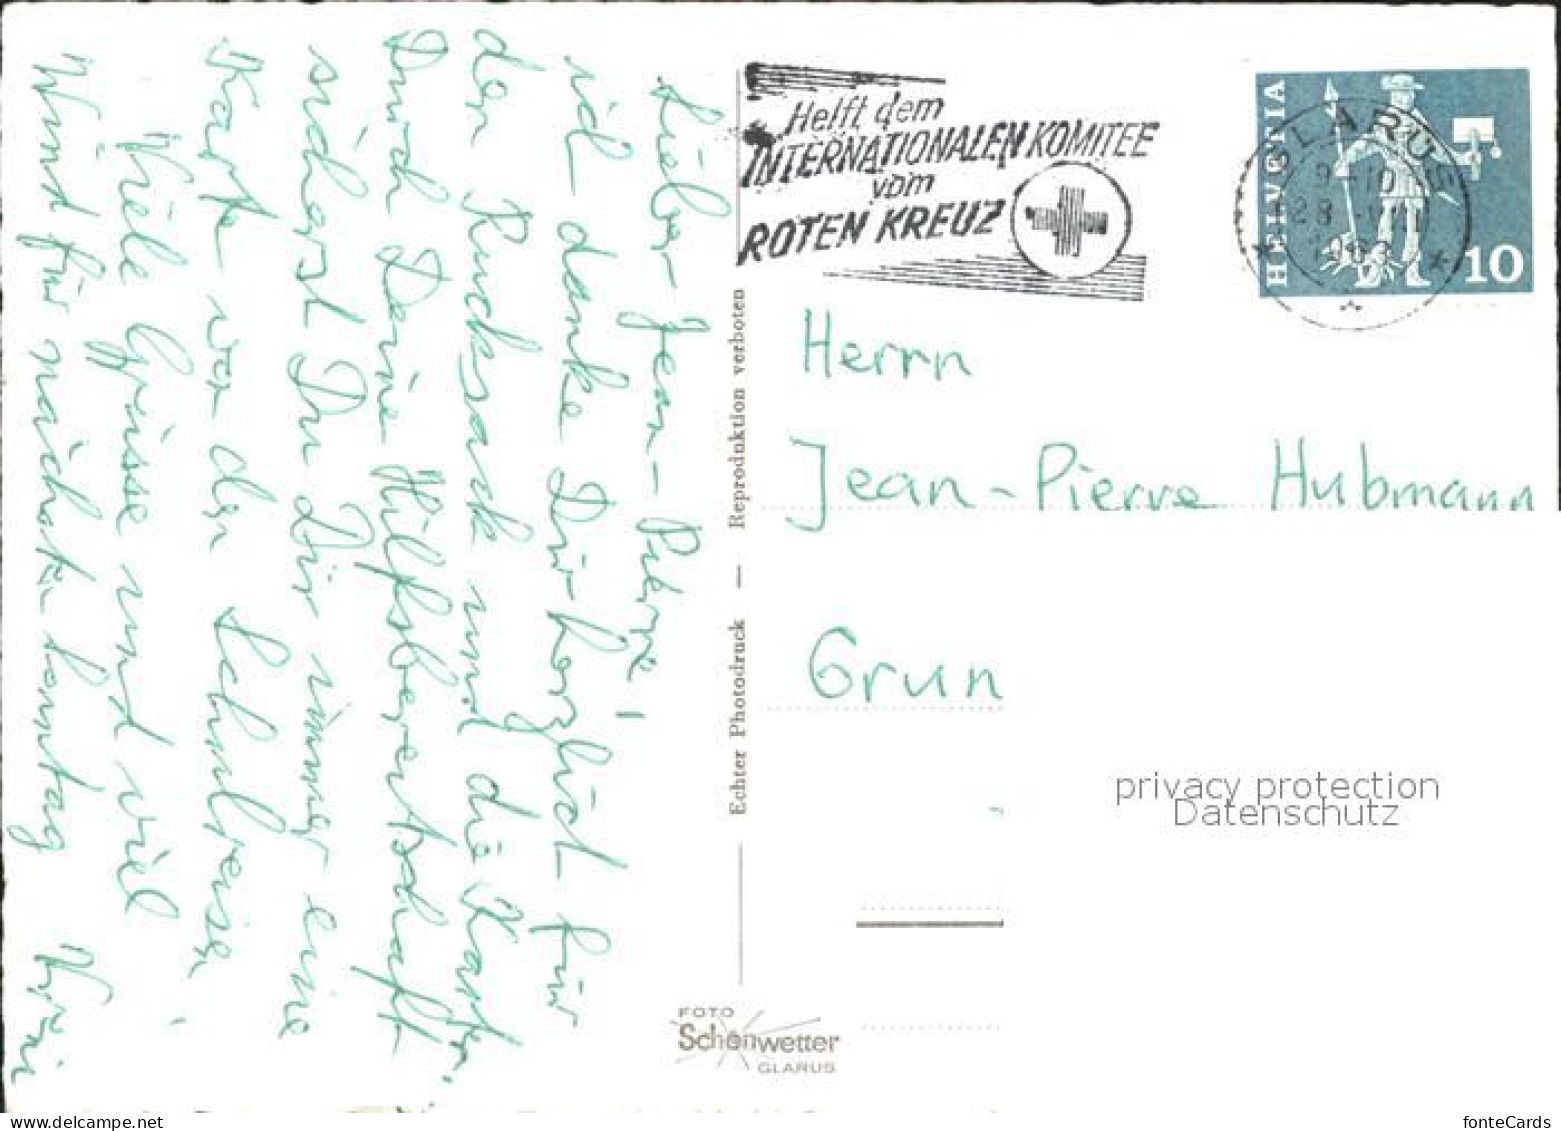 Lieber Jean-Pierre!
ich danke Dir herzlich für
den Rucksack und die Karte.
Durch Deine Hilfsbereitschaft
sicherst Du Dir immer eine
Karte von der Schulreise
Viele Grüsse und viel
Wind für nächsten Sonntag
Echter Photodruck — Reproduktion verboten
FOTO
Schönwetter
GLARUS
Helft dem
INTERNATIONALEN KOMITEE
vom
ROTEN KREUZ
GLARUS
HELVETIA
10
Herrn
Jean-Pierre Hubmann
Grun
privacy protection
Datenschutz
www.ansichtskartenversand.com
fonteCards